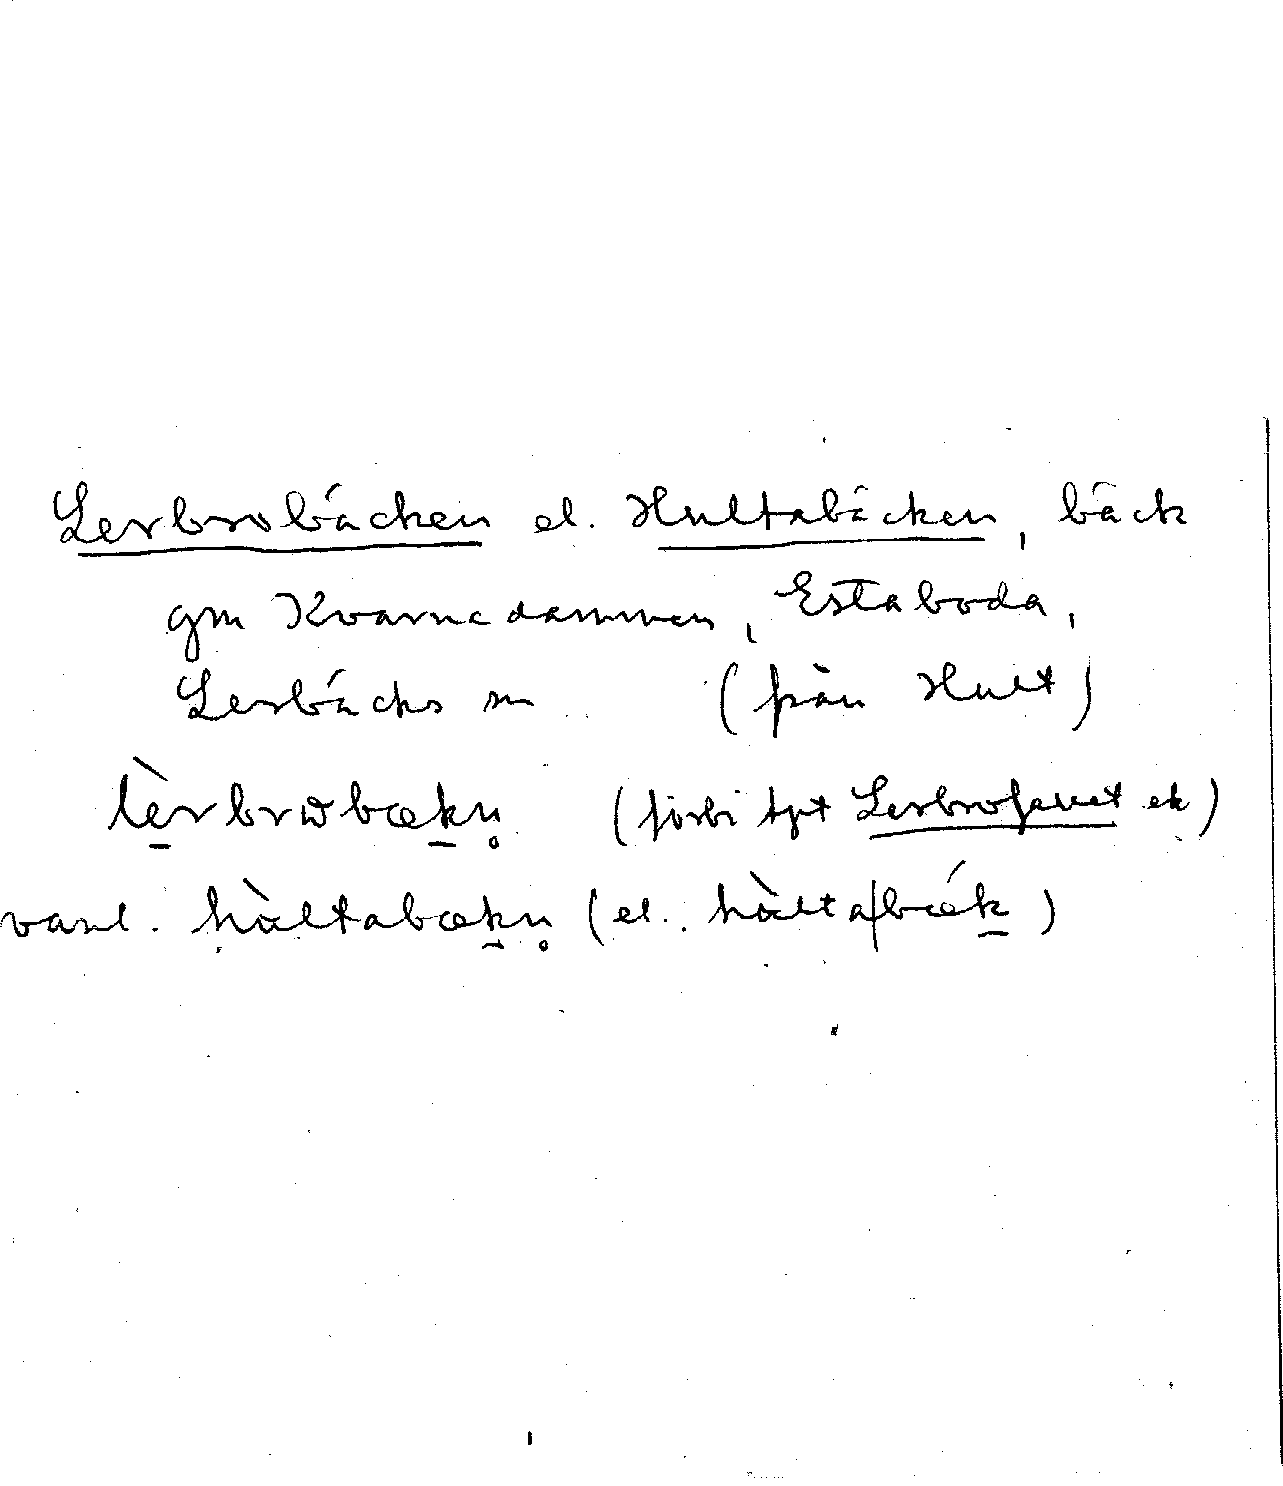 Lerbrobäcken el. Hultabäcken, bäck
gm Kvarnedammen, Estaboda,
Lerbäcks sn (från Hult)
lèrbrωbækn̥ (förbi tpt Lerbrohuset ek)
vanl. hàltabækn̥ (el. hàlta/bǽk)